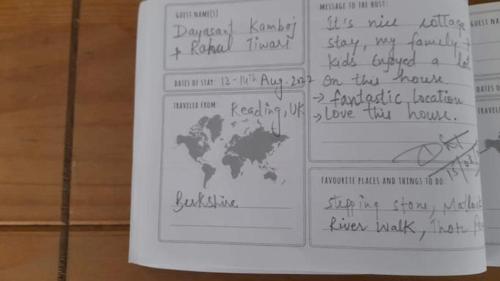 GUEST NAME(S)
Dayasant Kamboj
+ Rahul Tiwari
DATES OF STAY: 12-14th Aug. 2022
TRAVELED FROM: Reading, UK
Berkshire
MESSAGE TO THE HOST:
It's nice cottage
stay, my family +
kids enjoyed a lot
on this house
→ fantastic location
→ love this house.
FAVOURITE PLACES AND THINGS TO DO:
stepping stone, Matlock
River walk,
GUEST NA
DATES O
TRAVELE